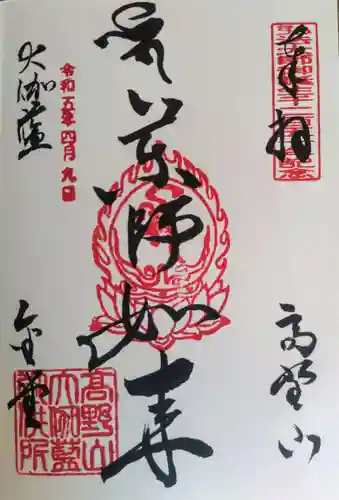 奉拝
高野山
薬師如来
大伽藍
令和五年四月九日
金堂
高野山
大伽藍
御供所